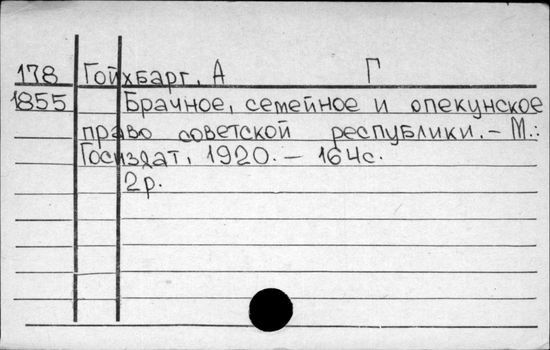 178 Гойхбарг, А Г
1855 Брачное, семейное и опекунское
право советской республики. – М.:
Госиздат, 1920. – 164с.
2р.